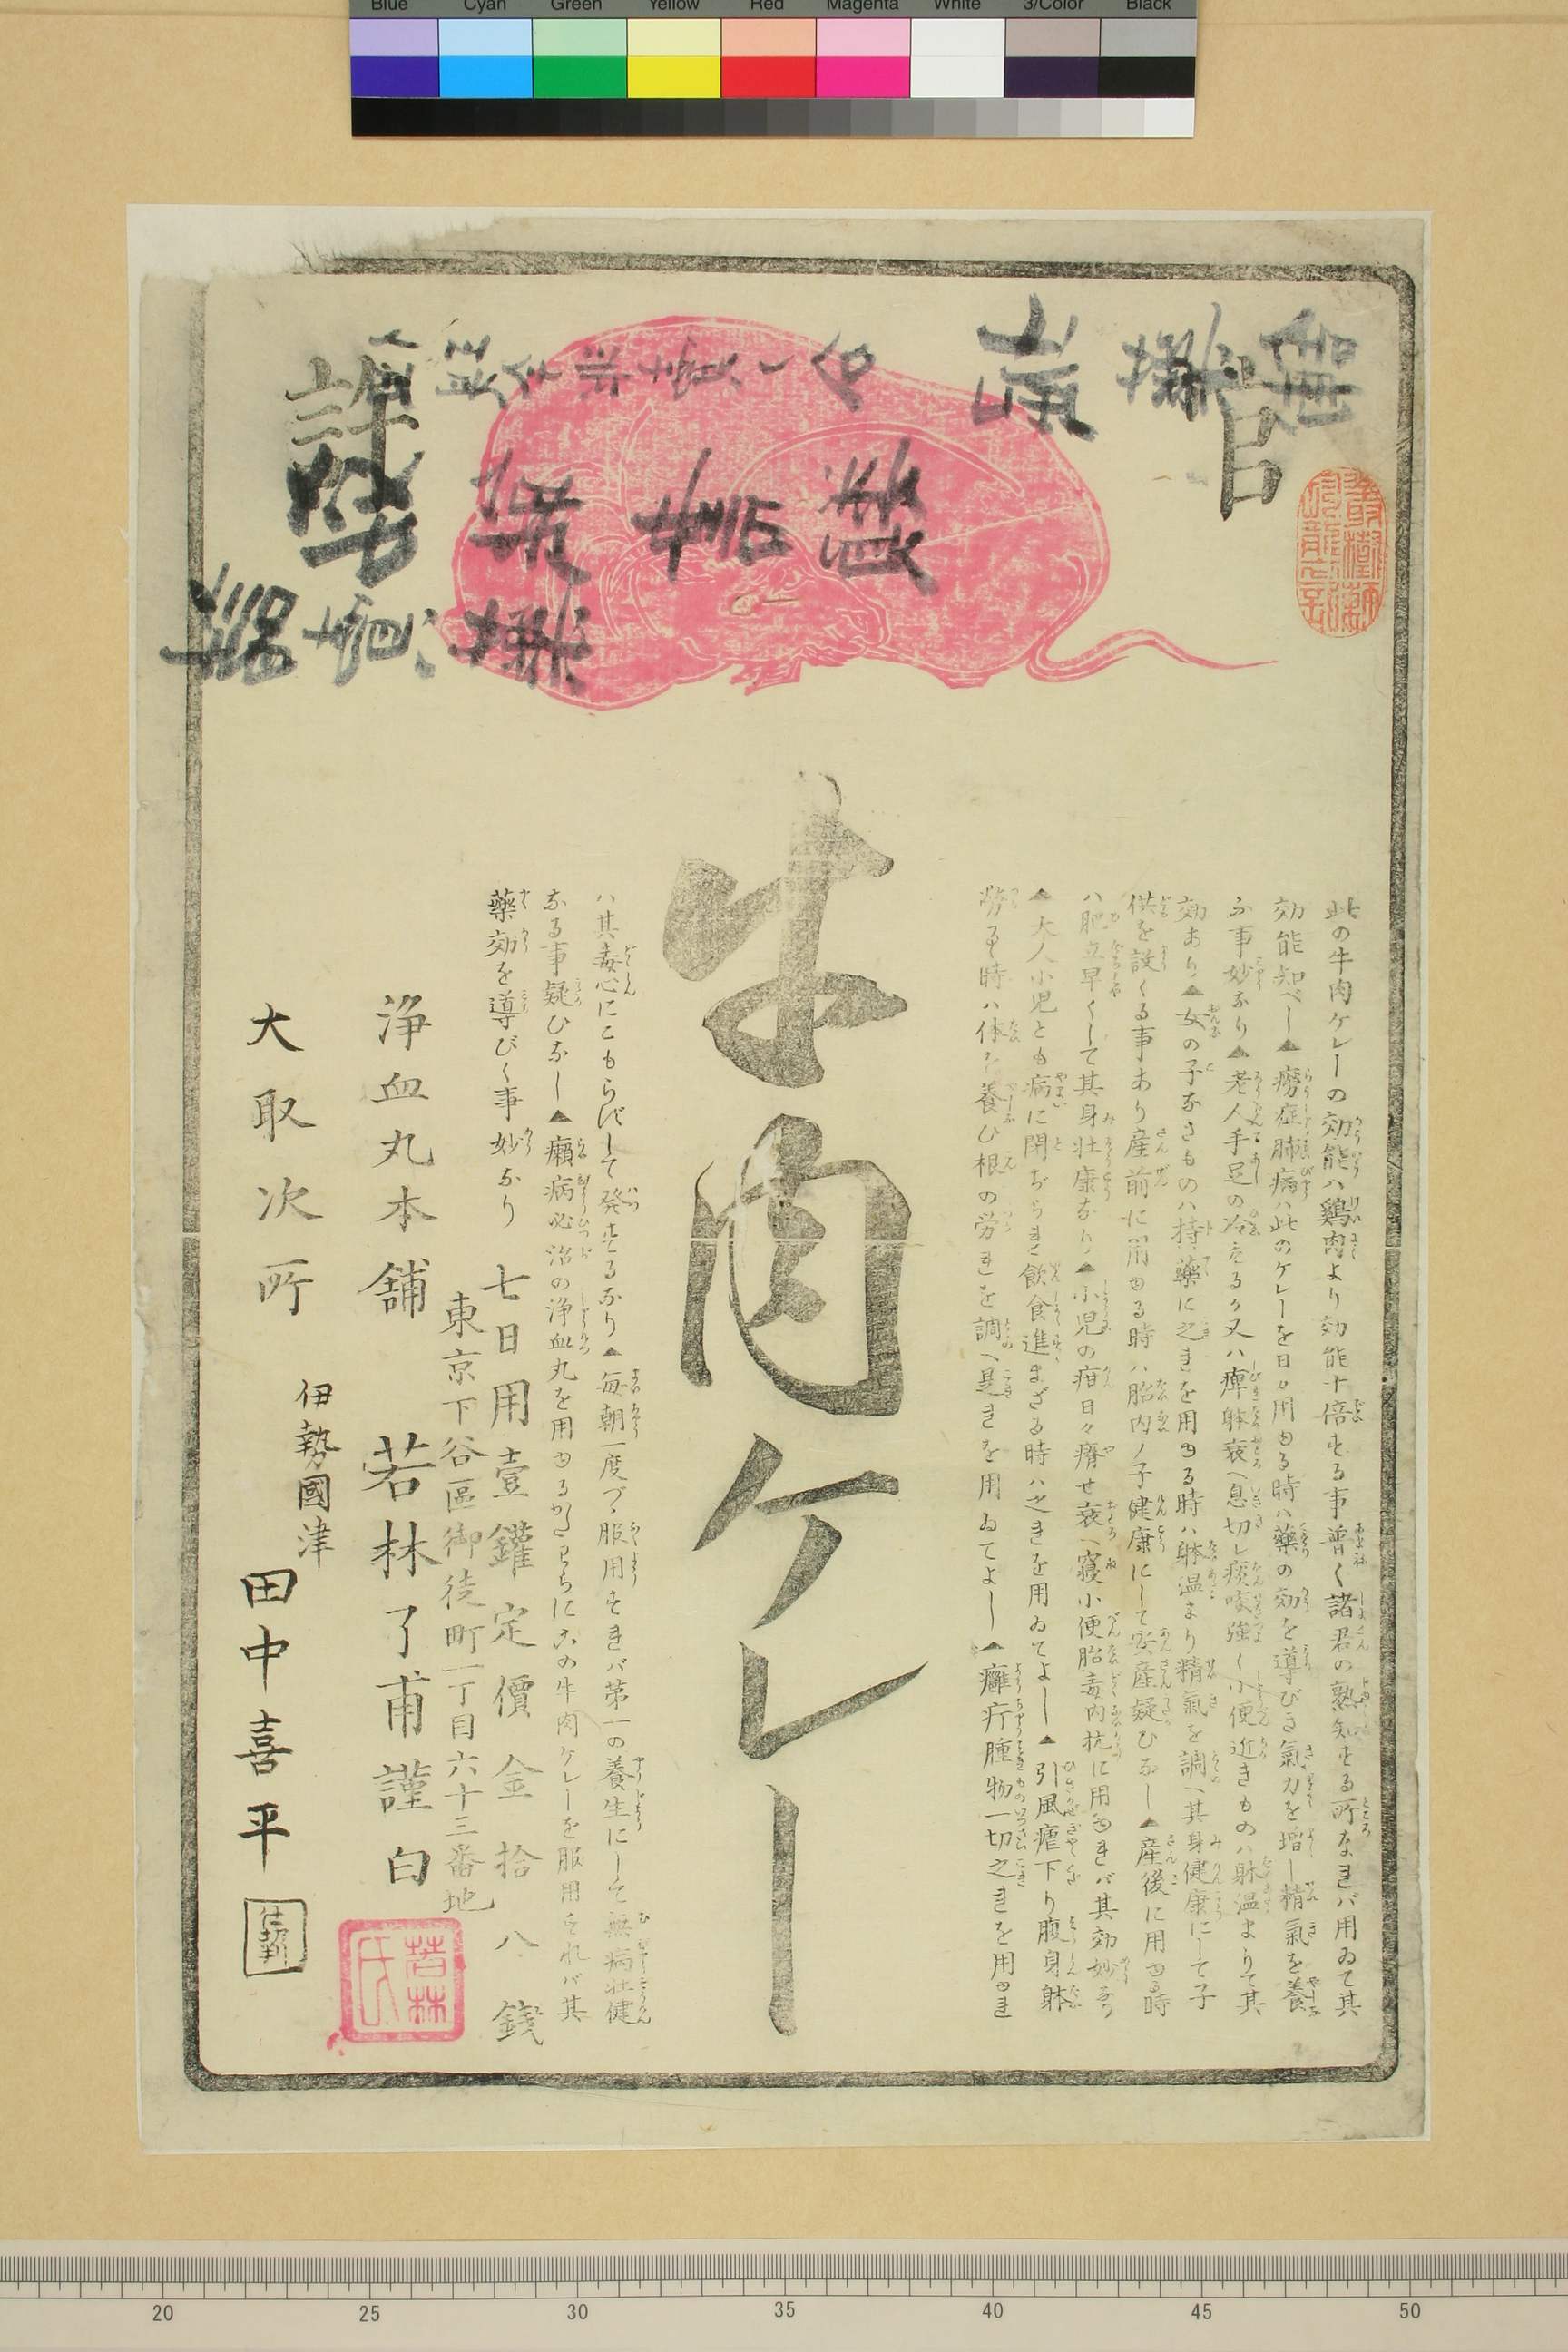 Blue Cyan Green Yellow Red Magenta White 3/Color Black
官
許
此の牛肉ケレーの効能ハ鷄肉より効能十倍する事普く諸君の熟知する所なれバ用ゐて其
効能知べし▲癆症肺病ハ此のケレーを日々用ゆる時ハ藥の効を導びき氣力を增し精氣を養
ふ事妙なり▲老人手足の冷えるか又ハ痺躰衰へ息切レ痰咳強く小便近きものハ躰温まりて其
効あり▲女の子なきものハ持藥に之れを用ゆる時ハ躰温まり精氣を調へ其身健康にして子
供を設くる事あり産前に用ゆる時ハ胎内ノ子健康にして安産疑ひなし▲産後に用ゆる時
ハ肥立早くして其身壮康なり▲小児の疳日々瘠せ衰へ寢小便胎毒内抗に用ゆれバ其効妙なり
▲大人小児とも病に閉ぢられ飲食進まざる時ハ之れを用ゐてよし▲引風瘧下り腹身躰
勞るゝ時ハ体を養ひ根の労れを調へ是れを用ゐてよし▲癰疔腫物一切之れを用ゆれ
牛肉ケレー
ハ其毒心にこもらずして發するなり▲毎朝一度づゝ服用すれバ第一の養生にして無病壮健
なる事疑ひなし▲癩病必治の浄血丸を用ゆるかたわらにこの牛肉ケレーを服用すれバ其
藥効を導びく事妙なり
七日用壹鑵定價金拾八錢
東京下谷區御徒町一丁目六十三番地
浄血丸本舗
若林了甫謹白
若林氏
大取次所
伊勢國津
田中喜平
20 25 30 35 40 45 50